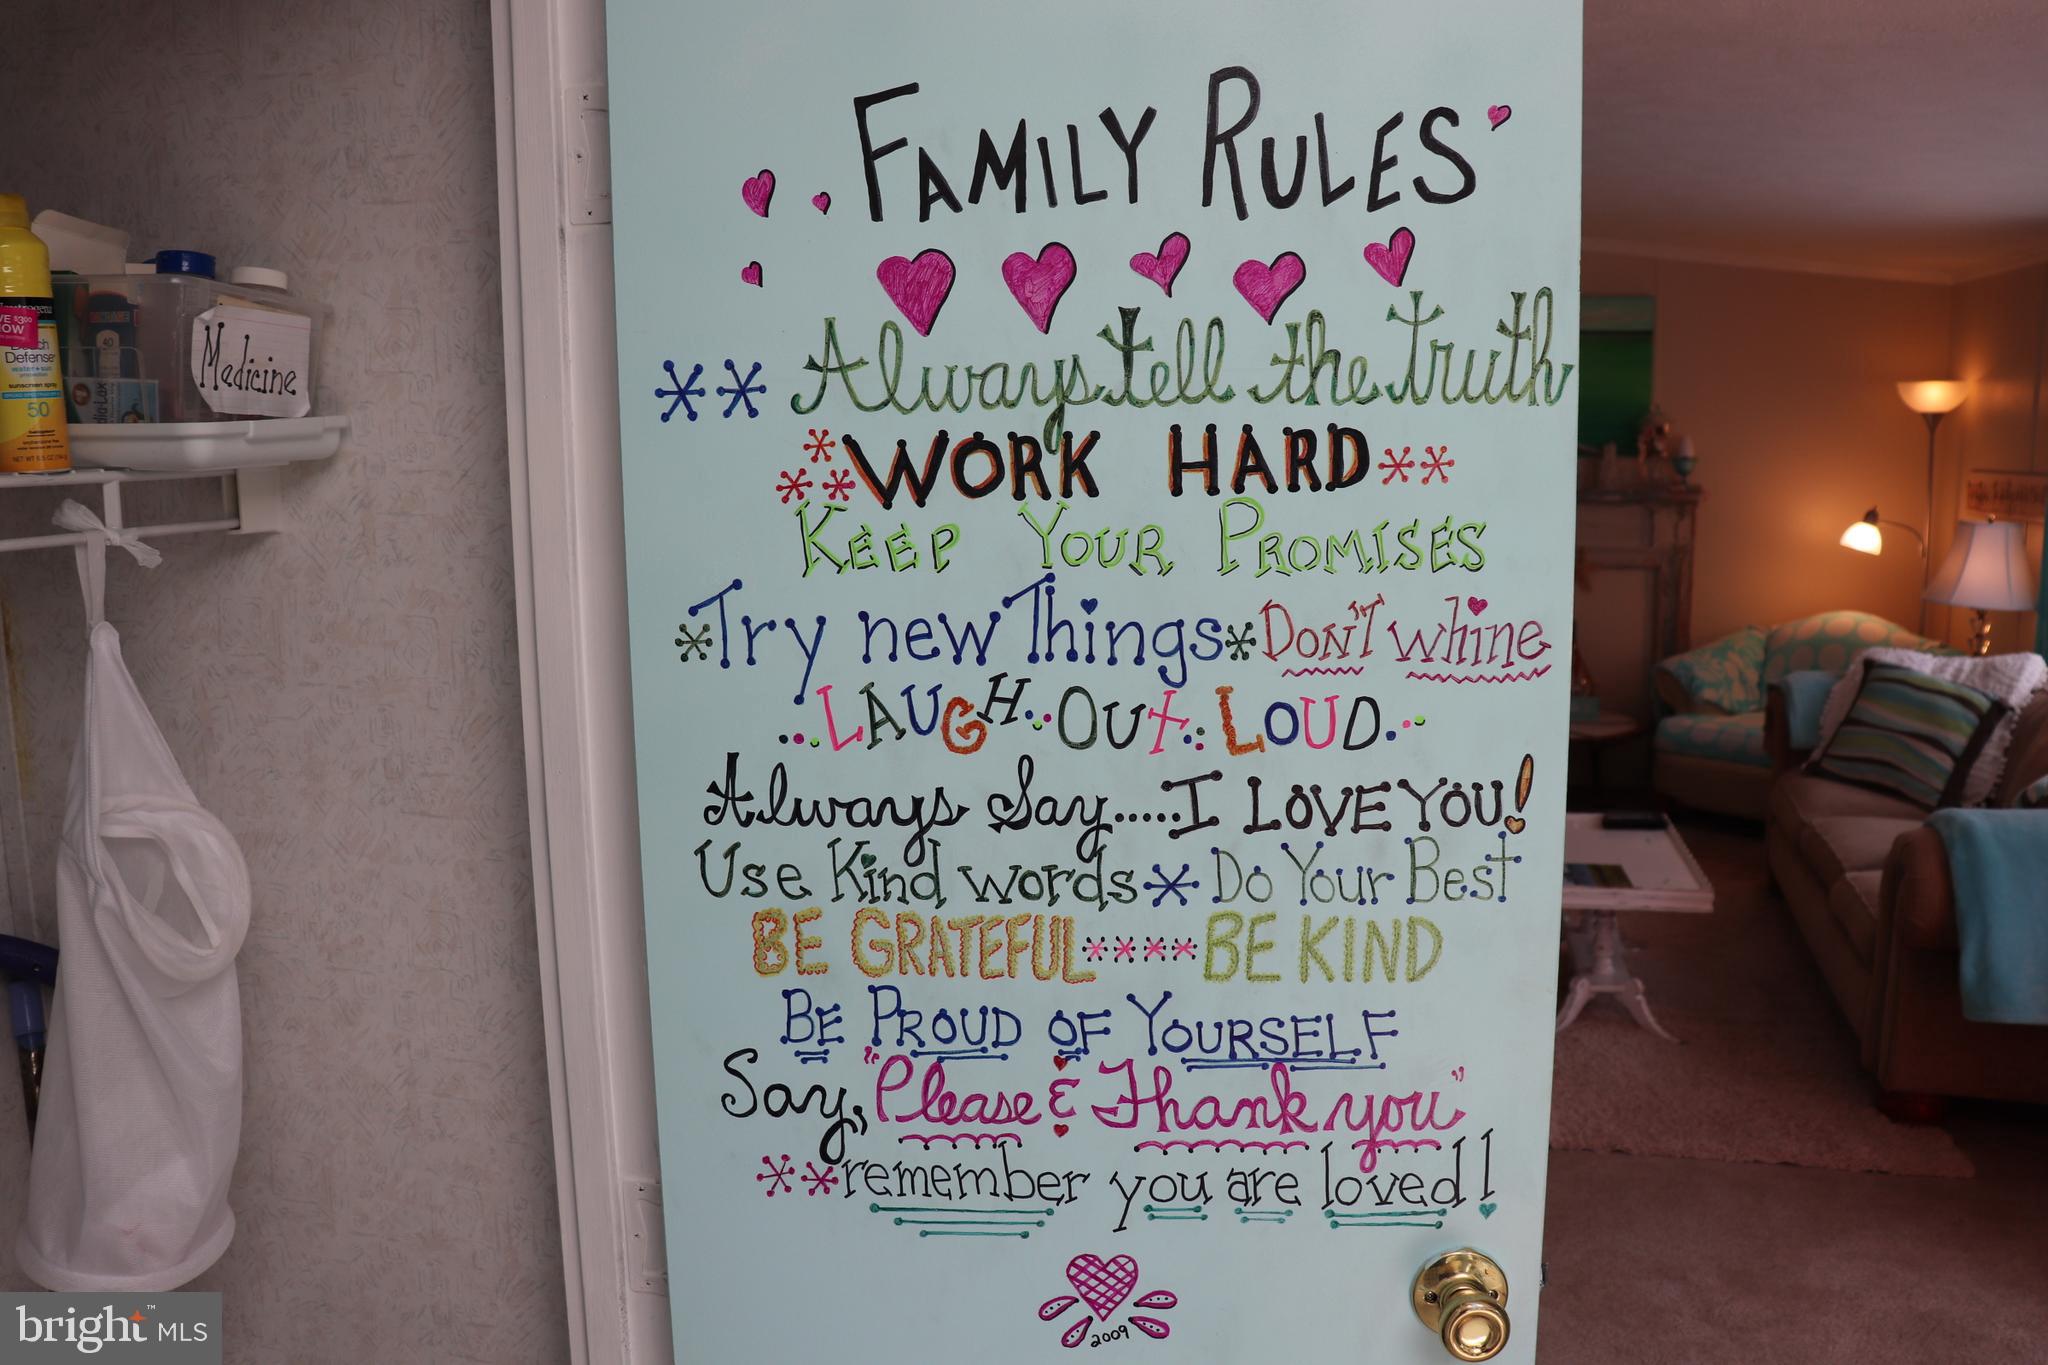 FAMILY RULES
Always tell the truth
WORK HARD
KEEP YOUR PROMISES
Try new Things DON'T whine
LAUGH OUT LOUD
Always Say.....I LOVE YOU!
Use Kind words Do Your Best
BE GRATEFUL BE KIND
BE PROUD OF YOURSELF
Say, "Please & Thank you"
remember you are loved!
2009
Medicine
SAVE $3.00
NOW
Beach
Defense
water + sun
protection
sunscreen spray
50
40
bright™ MLS